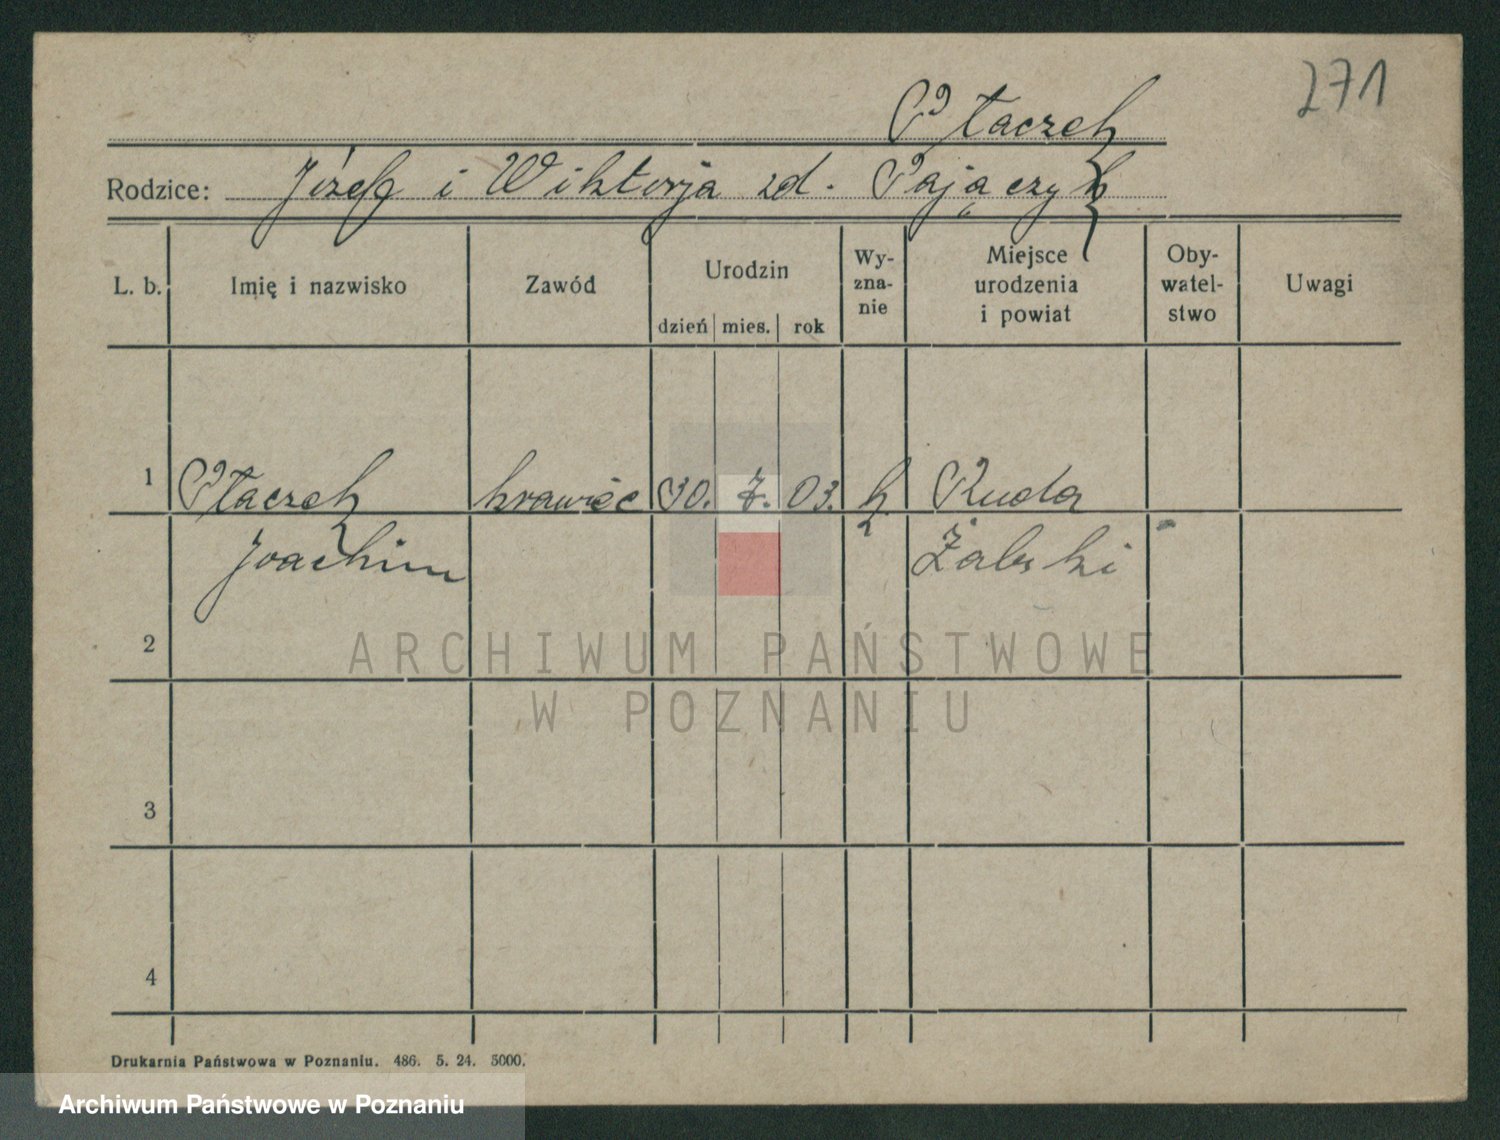 271
Ptaczek
Rodzice: Józef i Wiktorja zd. Pajączyk
L. b. Imię i nazwisko Zawód Urodzin dzień mies. rok Wy-zna-nie Miejsce urodzenia i powiat Oby-watel-stwo Uwagi
1 Ptaczek krawiec 30. 7. 03. k Ruda
Joachim Żabski
2
ARCHIWUM PAŃSTWOWE
W POZNANIU
3
4
Drukarnia Państwowa w Poznaniu. 486. 5. 24. 5000.
Archiwum Państwowe w Poznaniu